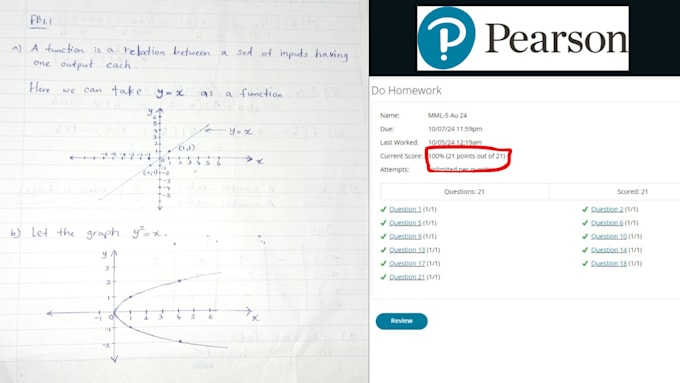 PB1.1
a) A function is a relation between a set of inputs having
one output each.
Here we can take y=x as a function
y
y=x
(1,1)
x
(-1,-1)
b) Let the graph y²=x.
y
3
2
1
-1 0 1 2 3 4 5 6
x
-1
-2
P Pearson
Do Homework
Name: MML-5 Au 24
Due: 10/07/24 11:59pm
Last Worked: 10/05/24 12:19am
Current Score: 100% (21 points out of 21)
Attempts: Unlimited per question
Questions: 21 Scored: 21
Question 1 (1/1) Question 2 (1/1)
Question 5 (1/1) Question 6 (1/1)
Question 9 (1/1) Question 10 (1/1)
Question 13 (1/1) Question 14 (1/1)
Question 17 (1/1) Question 18 (1/1)
Question 21 (1/1)
Review